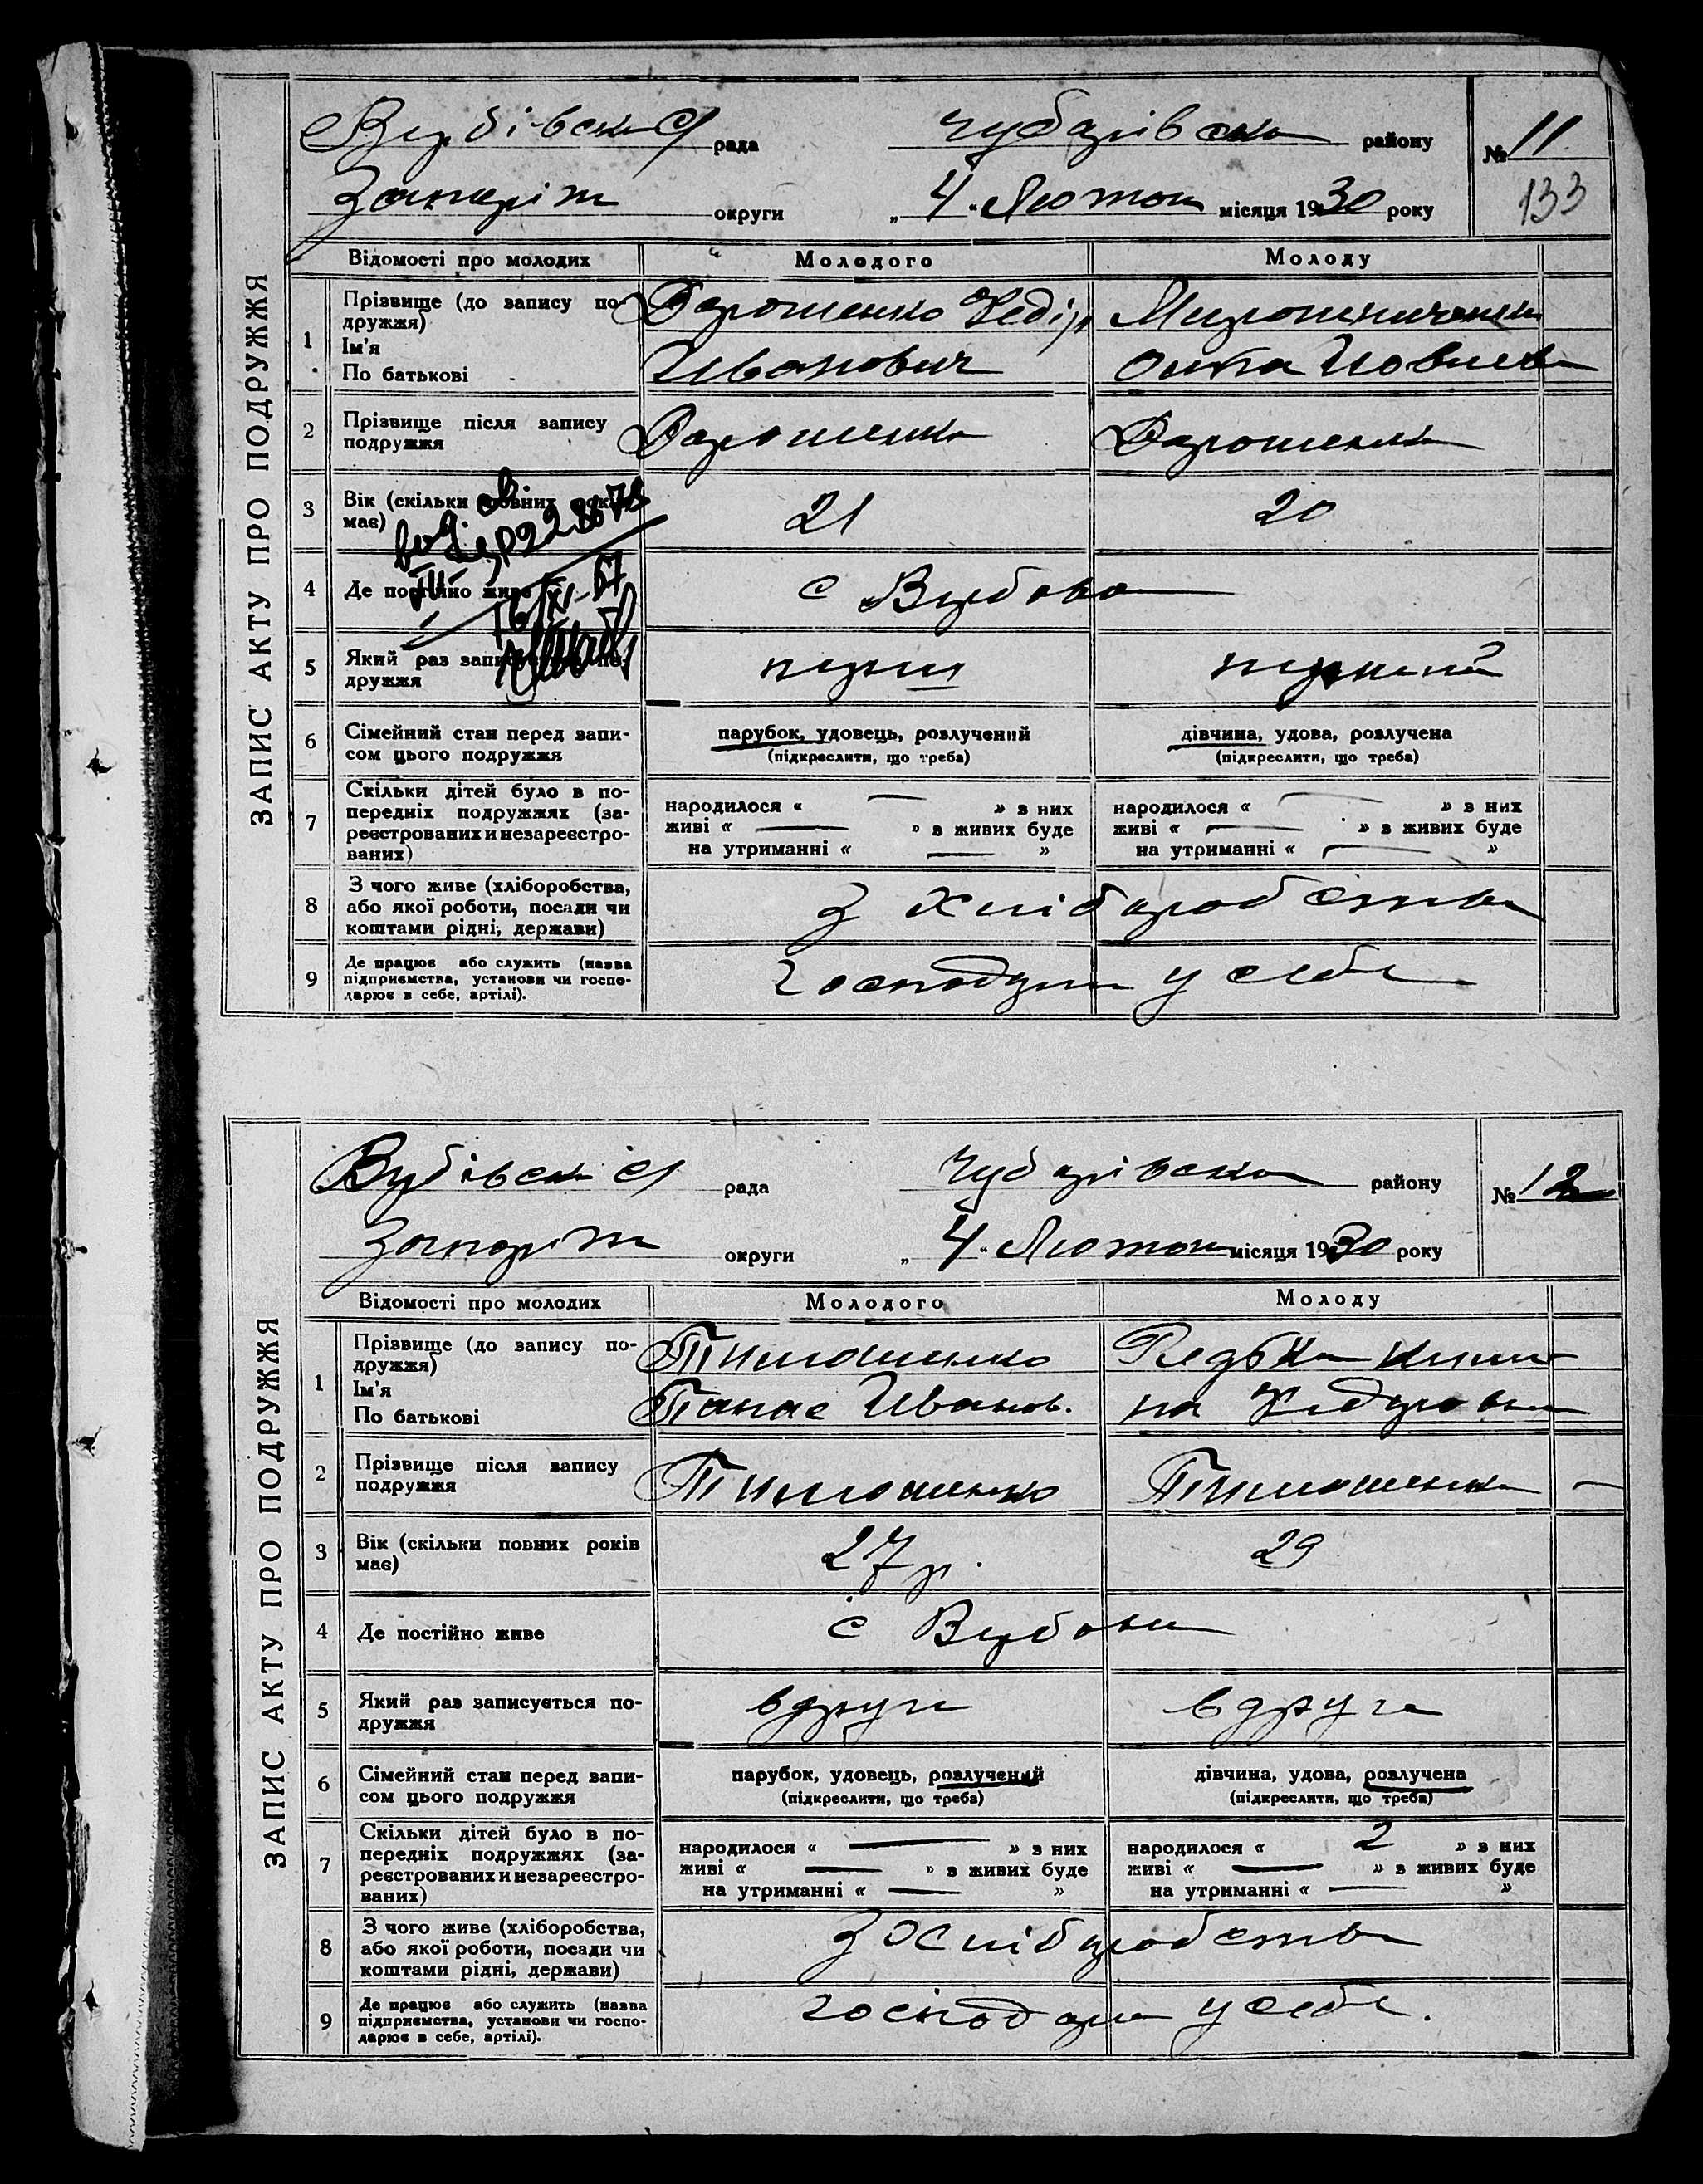 ЗАПИС АКТУ ПРО ПОДРУЖЖЯ
Вербівська рада Чубарівськ району № 11
Запоріж округи „4“ Лютого місяця 1930 року 133
Відомості про молодих Молодого Молоду
1 Прізвище (до запису по- Дорошенко Федір Мирошниченко
дружжя)
Ім'я
По батькові Иванович
2 Прізвище після запису Дорошенко Дорошенко
подружжя
3 Вік (скільки повних років 21 20
має)
4 Де постійно живе с Вербова
5 Який раз записується по- перши перший
дружжя
6 Сімейний стан перед запи- парубок, удовець, розлучений дівчина, удова, розлучена
сом цього подружжя (підкреслити, що треба) (підкреслити, що треба)
7 Скільки дітей було в по-
передніх подружжях (за- народилося « — » з них народилося « — » з них
реєстрованих и незареєстро- живі « — » з живих буде живі « — » з живих буде
ваних) на утриманні « — » на утриманні « — »
8 З чого живе (хліборобства, З хліборобства
або якої роботи, посади чи
коштами рідні, держави)
9 Де працює або служить (назва господари у себе
підприємства, установи чи госпо-
дарює в себе, артілі).
ЗАПИС АКТУ ПРО ПОДРУЖЖЯ
Вербівська рада Чубарівська району № 12
Запоріж округи „4“ Лютого місяця 1930 року
Відомості про молодих Молодого Молоду
1 Прізвище (до запису по- Тимошенко Редька
дружжя)
Ім'я
По батькові Панас Иванов. на Федоровна
2 Прізвище після запису Тимошенко Тимошенко —
подружжя
3 Вік (скільки повних років 27 р. 29
має)
4 Де постійно живе с Вербова
5 Який раз записується по- вдруге вдруге
дружжя
6 Сімейний стан перед запи- парубок, удовець, розлучений дівчина, удова, розлучена
сом цього подружжя (підкреслити, що треба) (підкреслити, що треба)
7 Скільки дітей було в по-
передніх подружжях (за- народилося « — » з них народилося « 2 » з них
реєстрованих и незареєстро- живі « — » з живих буде живі « — » з живих буде
ваних) на утриманні « — » на утриманні « — »
8 З чого живе (хліборобства, З хліборобства
або якої роботи, посади чи
коштами рідні, держави)
9 Де працює або служить (назва господари у себе.
підприємства, установи чи госпо-
дарює в себе, артілі).